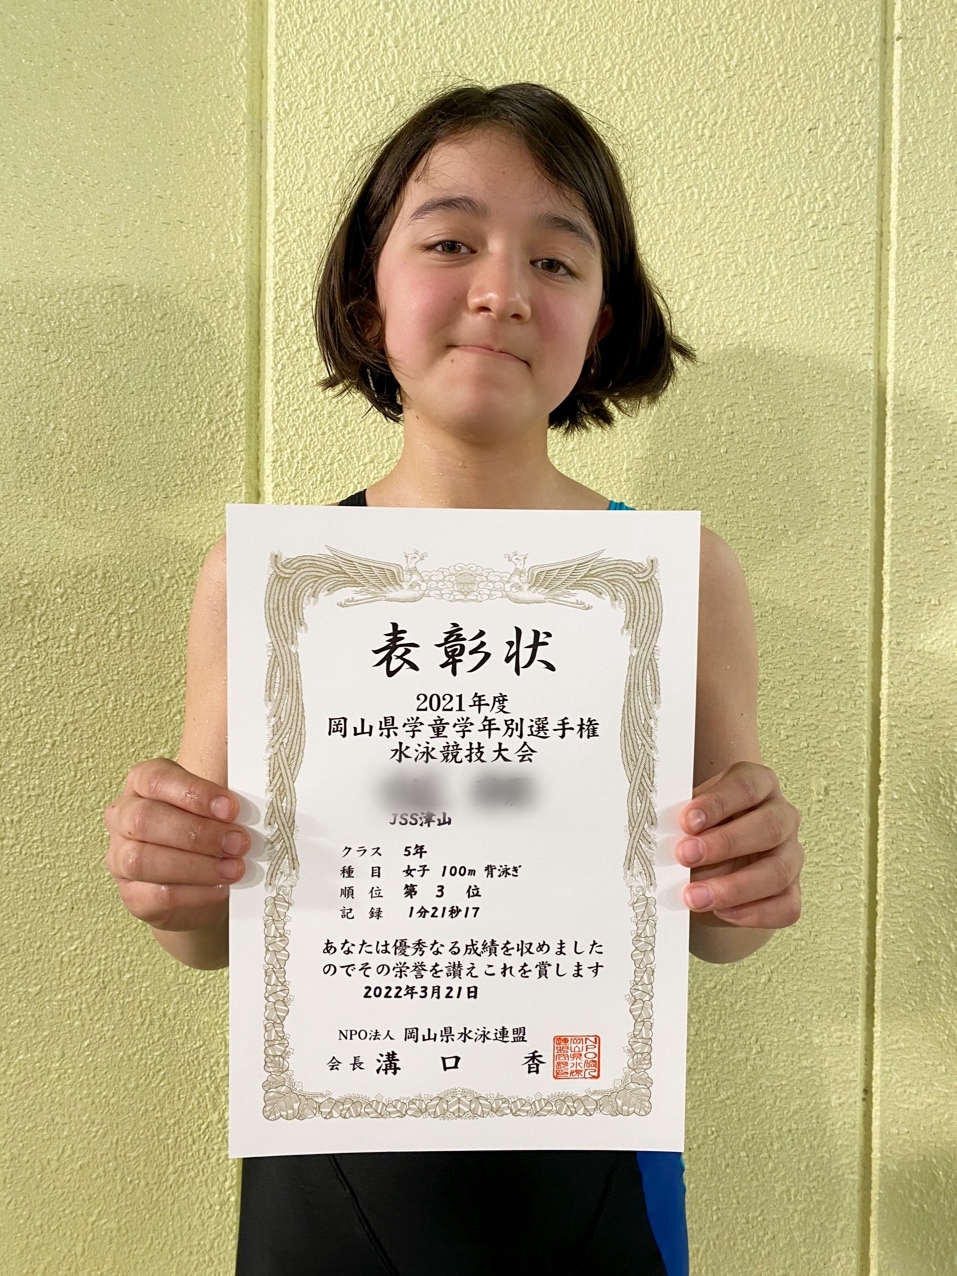 表彰状
2021年度
岡山県学童学年別選手権
水泳競技大会
JSS津山
クラス 5年
種目 女子 100m 背泳ぎ
順位 第 3 位
記録 1分21秒17
あなたは優秀なる成績を収めました
のでその栄誉を讃えこれを賞します
2022年3月21日
NPO法人 岡山県水泳連盟
会長 溝口 香